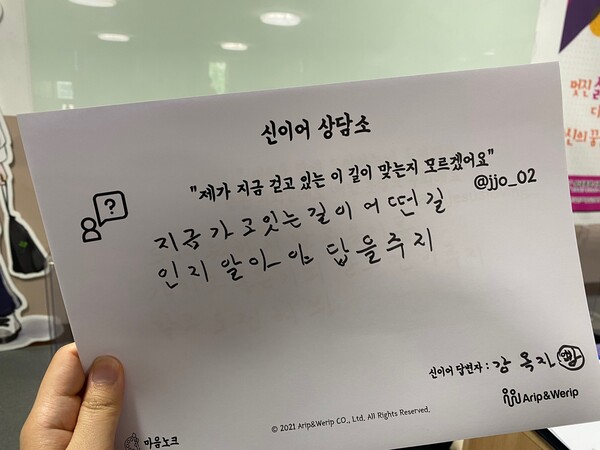 신이어 상담소
"제가 지금 걷고 있는 이 길이 맞는지 모르겠어요"
@jjo_02
?
지금 가고잇는 길이 어떤길
인지 알아야 답을주지
신이어 답변자 : 강 옥자
Arip&Werip
© 2021 Arip&Werip CO., Ltd. All Rights Reserved.
마음노크
멋진